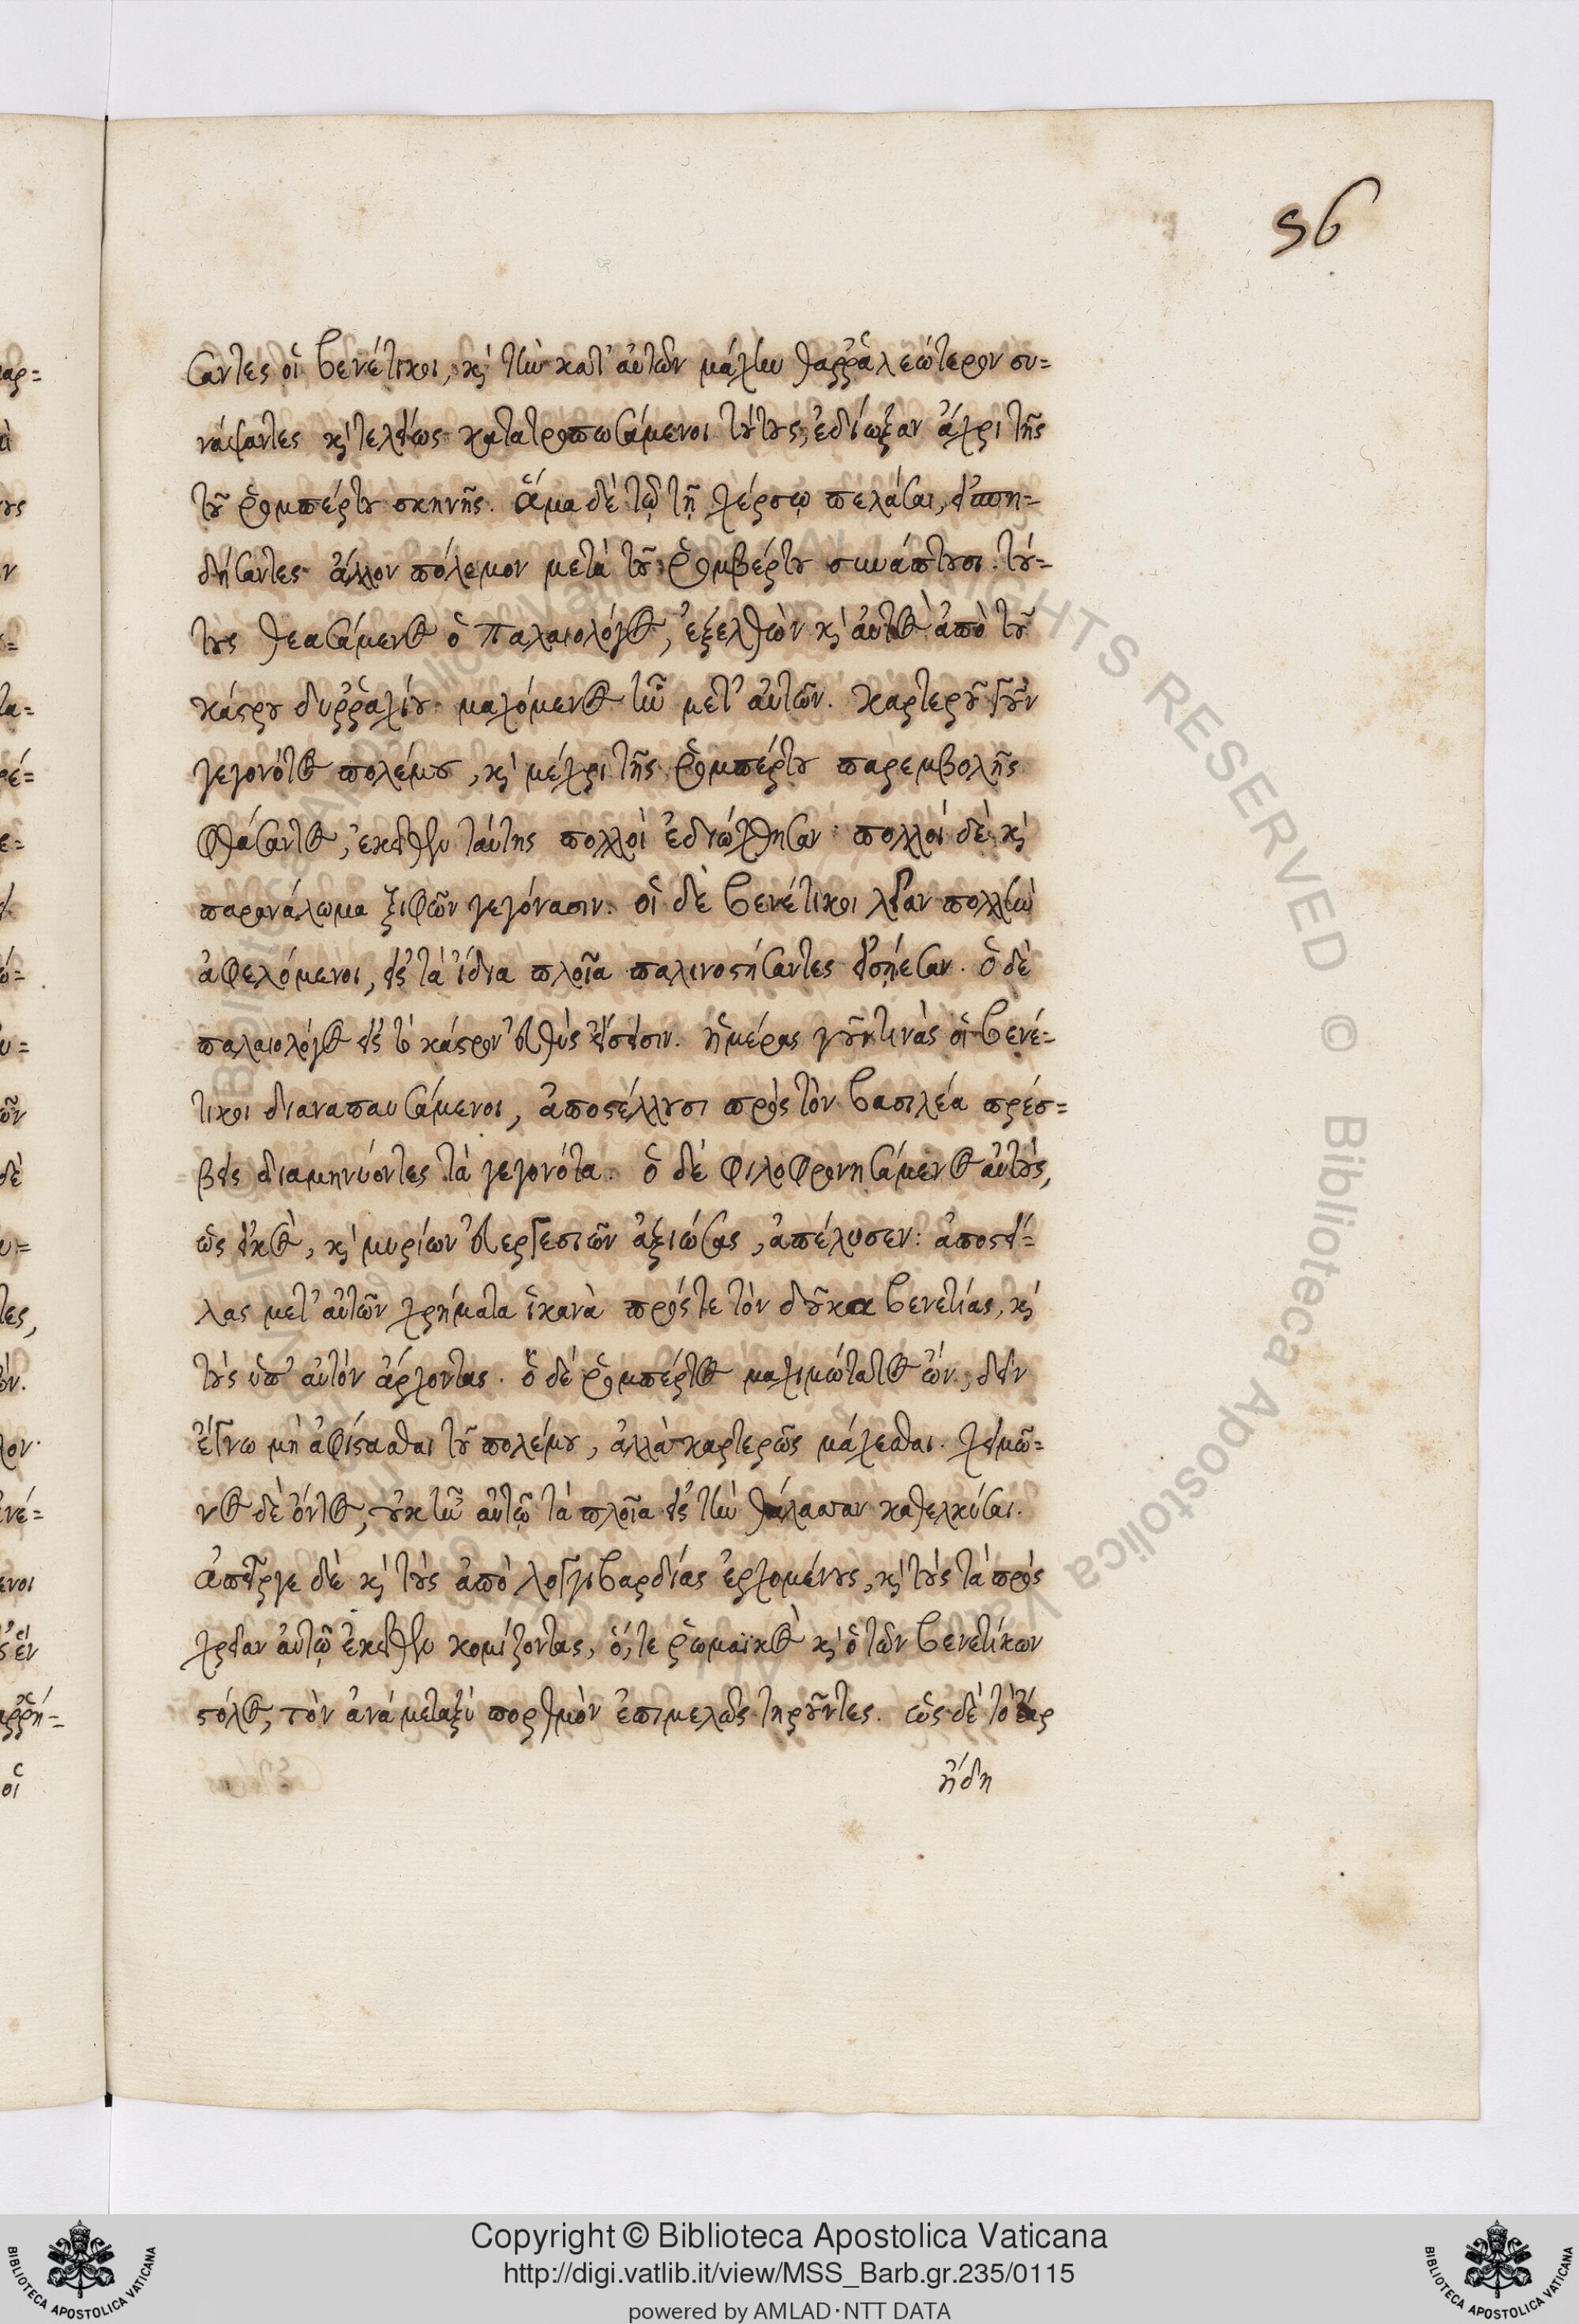 56
σαντες οἱ βενέτικοι, καὶ τὴν κατ' αὐτῶν μάχην θαῤῥαλεώτερον συ=
νάψαντες καὶ τελείως κατατροπωσάμενοι τούτους, ἐδίωξαν ἄχρι τῆς
τοῦ ῥομπέρτου σκηνῆς. ἅμα δὲ τῷ τῇ χέρσῳ πελάσαι, εἰσπη=
δήσαντες ἄλλον πόλεμον μετὰ τοῦ ῥομβέρτου συνάπτουσι. τού=
τους θεασάμενος ὁ Παλαιολόγος, ἐξελθὼν καὶ αὐτὸς ἀπὸ τοῦ
κάστρου δυῤῥαχίου μαχόμενος ἦν μετ' αὐτῶν. καρτεροῦ γοῦν
γεγονότος πολέμου, καὶ μέχρι τῆς ῥομπέρτου παρεμβολῆς
φθάσαντος, ἐκεῖθεν ταύτης πολλοὶ ἐδιώχθησαν· πολλοὶ δὲ καὶ
παρανάλωμα ξιφῶν γεγόνασιν. οἱ δὲ βενέτικοι λείαν πολλὴν
ἀφελόμενοι, εἰς τὰ ἴδια πλοῖα παλινοστήσαντες εἰσῄεσαν. ὁ δὲ
παλαιολόγος εἰς τὸ κάστρον εὐθὺς εἴσεισιν. ἡμέρας γοῦν τινὰς οἱ βενέ=
τικοι διαναπαυσάμενοι, ἀποστέλλουσι πρὸς τὸν βασιλέα πρέσ=
βεις διαμηνύοντες τὰ γεγονότα. ὁ δὲ φιλοφρονησάμενος αὐτοὺς,
ὡς εἰκὸς, καὶ μυρίων εὐεργεσιῶν ἀξιώσας, ἀπέλυσεν: ἀποστεί=
λας μετ' αὐτῶν χρήματα ἱκανὰ πρός τε τὸν δοῦκα βενετίας, καὶ
τοὺς ὑπ' αὐτὸν ἄρχοντας. ὁ δὲ ῥομπέρτος μαχιμώτατος ὢν, δεῖν
ἔγνω μὴ ἀφίστασθαι τοῦ πολέμου, ἀλλὰ καρτερῶς μάχεσθαι. χειμῶ=
νος δὲ ὄντος, οὐκ ἦν αὐτῷ τὰ πλοῖα εἰς τὴν θάλασσαν καθελκύσαι.
ἀπεῖργε δὲ καὶ τοὺς ἀπὸ λογγιβαρδίας ἐρχομένους, καὶ τοὺς τὰ πρὸς
χρείαν αὐτῷ ἐκεῖθεν κομίζοντας, ὅ, τε ῥωμαϊκὸς καὶ ὁ τῶν βενετίκων
στόλος, τὸν ἀνάμεταξὺ πορθμὸν ἐπιμελῶς τηροῦντες. ὡς δὲ τὸ ἔαρ
ἤδη
Copyright © Biblioteca Apostolica Vaticana
http://digi.vatlib.it/view/MSS_Barb.gr.235/0115
powered by AMLAD·NTT DATA